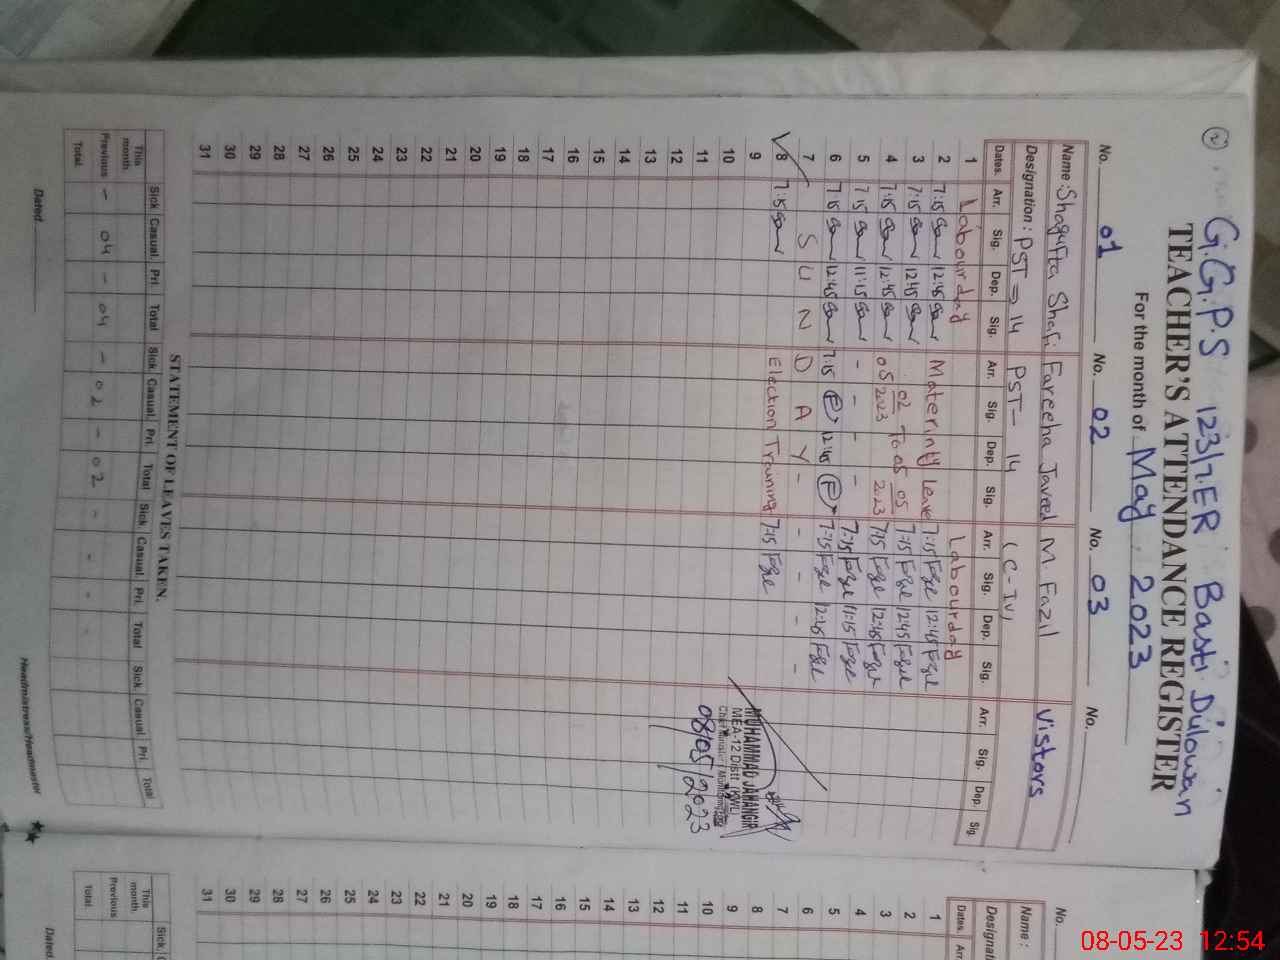 2
G.G.P.S 123/7.ER Basti Dulowan
TEACHER'S ATTENDANCE REGISTER
For the month of May 2023
No. 01 No. 02 No. 03 No.
Name: Shagufta Shafi Fareeha Javeed M. Fazil Vistors
Designation: PST => 14 PST - 14 (C-IV)
Dates. Arr. Sig. Dep. Sig. Arr. Sig. Dep. Sig. Arr. Sig. Dep. Sig. Arr. Sig. Dep. Sig.
1 Labourday Labourday
2 7:15 12:45 Materinty leave 7:15 Fazil 12:45 Fazil
3 7:15 12:45 02 To 05 05 7:15 Fazil 12:45 Fazil
4 7:15 12:45 05 2023 2023 7:15 Fazil 12:45 Fazil
5 7:15 11:15 - - - - 7:15 Fazil 11:15 Fazil
6 7:15 12:45 7:15 12:45 7:15 Fazil 12:45 Fazil
7 S U N D A Y - - - - -
8 7:15 Election Training 7:15 Fazil
9
10
11
12
13
14
15
16
17
18
19
20
21
22
23
24
25
26
27
28
29
30
31
MUHAMMAD JAHANGIR
MEA-12 Distt
08/05/2023
STATEMENT OF LEAVES TAKEN.
This month. Sick Casual Pri. Total Sick Casual Pri. Total Sick Casual Pri. Total Sick. Casual Pri. Total
Previous - 04 - 04 - 02 - 02 - - - -
Total.
Dated Headmistress/Headmaster
No.
Name:
Designati
Dates. Ar
1
2
3
4
5
6
7
8
9
10
11
12
13
14
15
16
17
18
19
20
21
22
23
24
25
26
27
28
29
30
31
This month. Sick. C
Previous
Total.
Dated
08-05-23 12:54